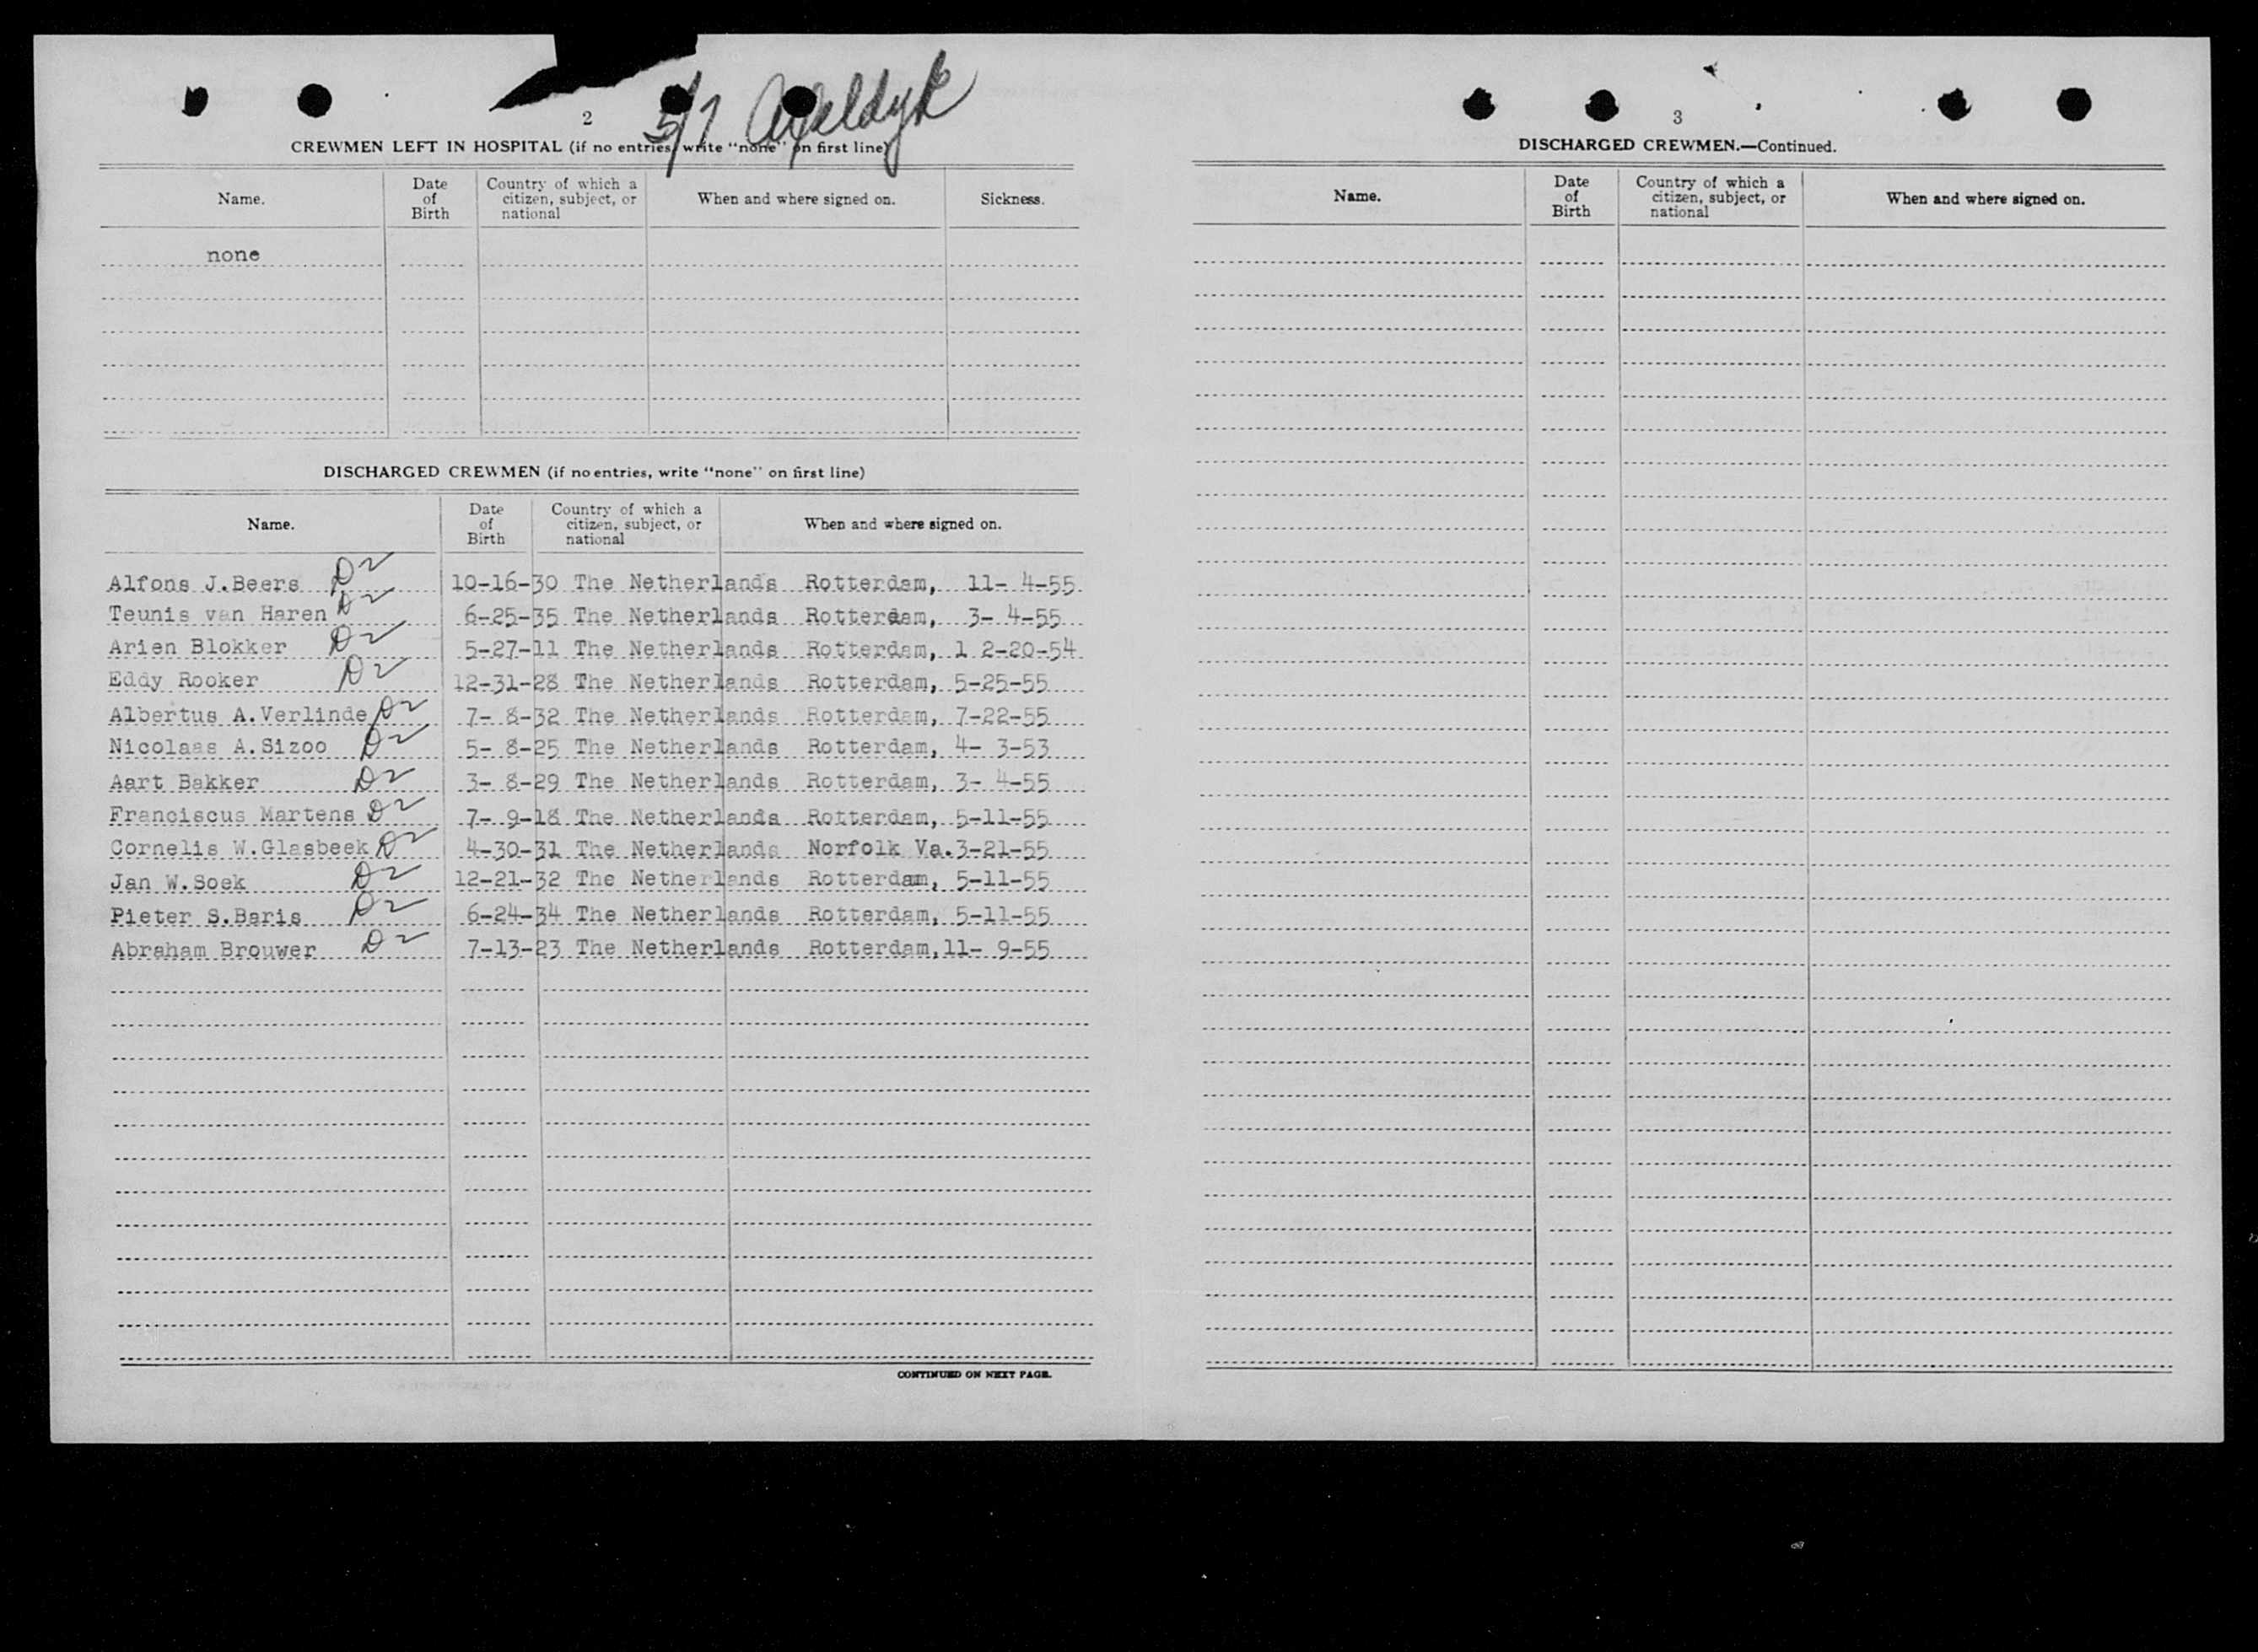 2
CREWMEN LEFT IN HOSPITAL (if no entries, write "none" on first line)
Name. Date of Birth Country of which a citizen, subject, or national When and where signed on. Sickness.
none
DISCHARGED CREWMEN (if no entries, write "none" on first line)
Name. Date of Birth Country of which a citizen, subject, or national When and where signed on.
Alfons J.Beers D2 10-16-30 The Netherlands Rotterdam, 11- 4-55
Teunis van Haren D2 6-25-35 The Netherlands Rotterdam, 3- 4-55
Arien Blokker D2 5-27-11 The Netherlands Rotterdam, 1 2-20-54
Eddy Rooker D2 12-31-28 The Netherlands Rotterdam, 5-25-55
Albertus A.Verlinde D2 7- 8-32 The Netherlands Rotterdam, 7-22-55
Nicolaas A.Sizoo D2 5- 8-25 The Netherlands Rotterdam, 4- 3-53
Aart Bakker D2 3- 8-29 The Netherlands Rotterdam, 3- 4-55
Franciscus Martens D2 7- 9-18 The Netherlands Rotterdam, 5-11-55
Cornelis W.Glasbeek D2 4-30-31 The Netherlands Norfolk Va.3-21-55
Jan W.Soek D2 12-21-32 The Netherlands Rotterdam, 5-11-55
Pieter S.Baris D2 6-24-34 The Netherlands Rotterdam, 5-11-55
Abraham Brouwer D2 7-13-23 The Netherlands Rotterdam,11- 9-55
CONTINUED ON NEXT PAGE.
3
DISCHARGED CREWMEN.—Continued.
Name. Date of Birth Country of which a citizen, subject, or national When and where signed on.